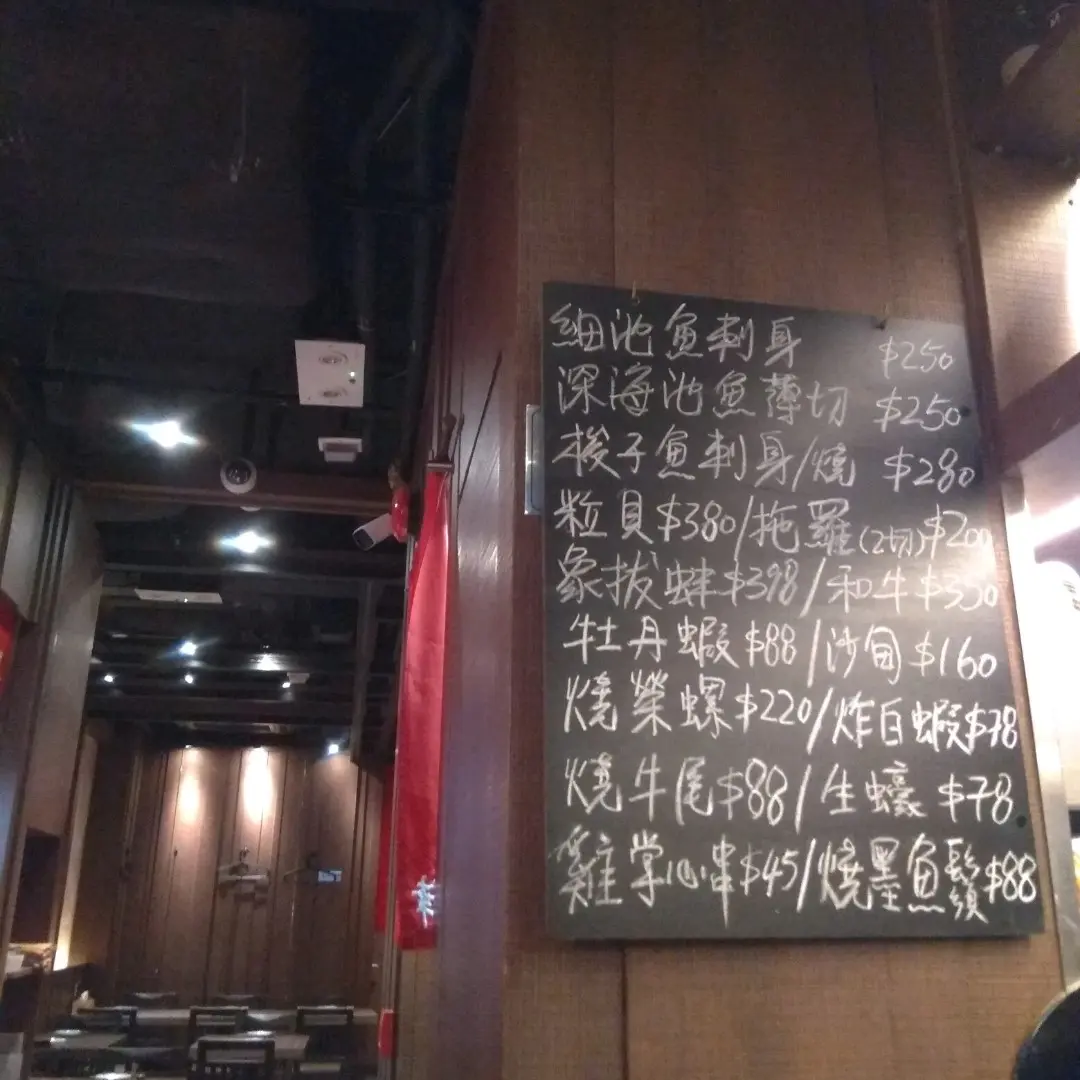 細池魚刺身 $250
深海池魚薄切 $250
梭子魚刺身/燒 $280
粒貝$380/拖羅(2切)$200
象拔蚌$398/和牛$350
牡丹蝦$88/沙甸$160
燒榮螺$220/炸白蝦$78
燒牛尾$88/生蠔$78
雞掌心串$45/燒墨魚鬚$88